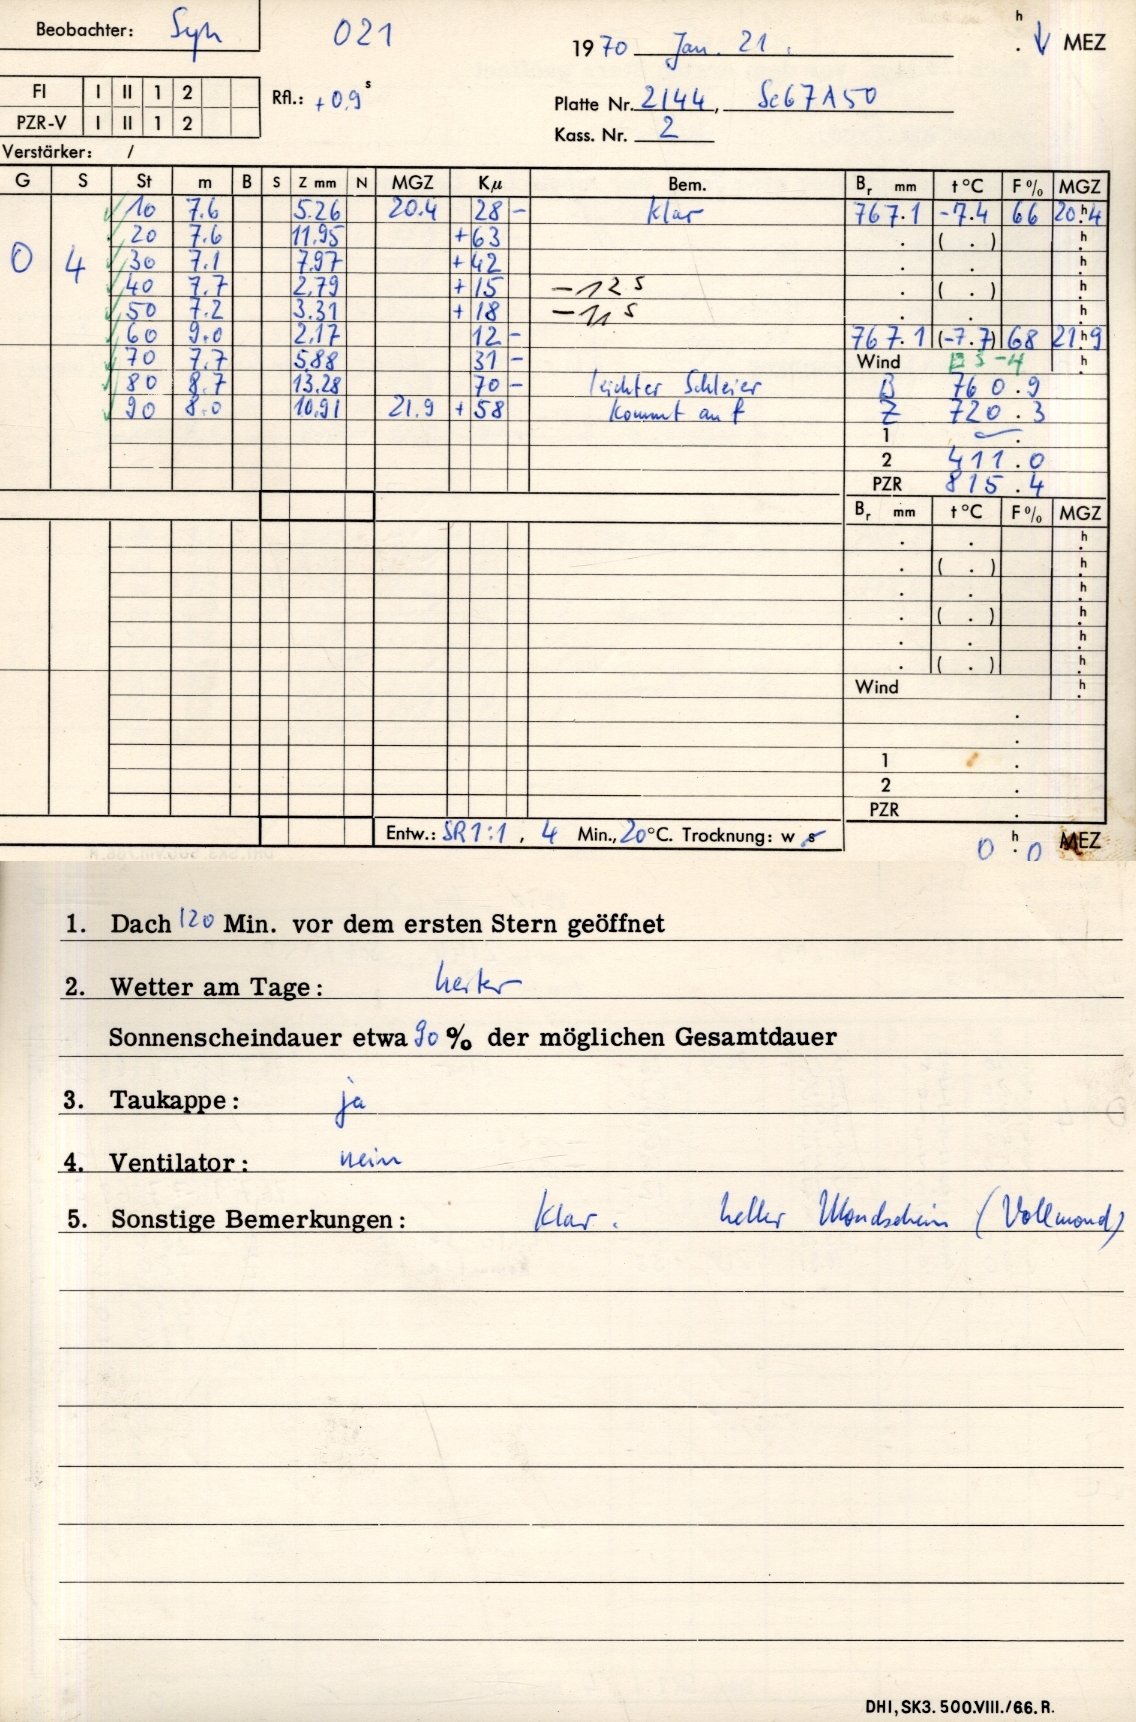 Beobachter: Syh 021 1970 Jan. 21. h . ↓ MEZ
FI I II 1 2
PZR-V I II 1 2
Rfl.: +0,9 s
Platte Nr. 2144, Sc67A50
Kass. Nr. 2
Verstärker: /
G S St m B S Z mm N MGZ Kμ Bem. Br mm t °C F % MGZ
0 4 10 7.6 5.26 20.4 28 – klar 767.1 -7.4 66 20h.4
20 7.6 11.95 +63 . ( . ) h
30 7.1 7.97 +42 . . h
40 7.7 2.79 +15 –12 s . ( . ) h
50 7.2 3.31 +18 –11 s . . h
60 9.0 2.17 12 – 767.1 (-7.7) 68 21h9
70 7.7 5.88 31 – Wind 3-4 h
80 8.7 13.28 70 – leichter Schleier B 760.9
90 8.0 10.91 21.9 +58 kommt auf Z 720.3
1 – .
2 411.0
PZR 815.4
Br mm t °C F % MGZ
. . h
. ( . ) h
. . h
. ( . ) h
. . h
. ( . ) h
Wind h
.
.
1 .
2 .
PZR .
Entw.: SR 1:1, 4 Min., 20°C. Trocknung: w s
0 h . 0 MEZ
1. Dach 120 Min. vor dem ersten Stern geöffnet
2. Wetter am Tage: heiter
Sonnenscheindauer etwa 90 % der möglichen Gesamtdauer
3. Taukappe: ja
4. Ventilator: nein
5. Sonstige Bemerkungen: klar. heller Mondschein (Vollmond)
DHI, SK3. 500.VIII./66. R.